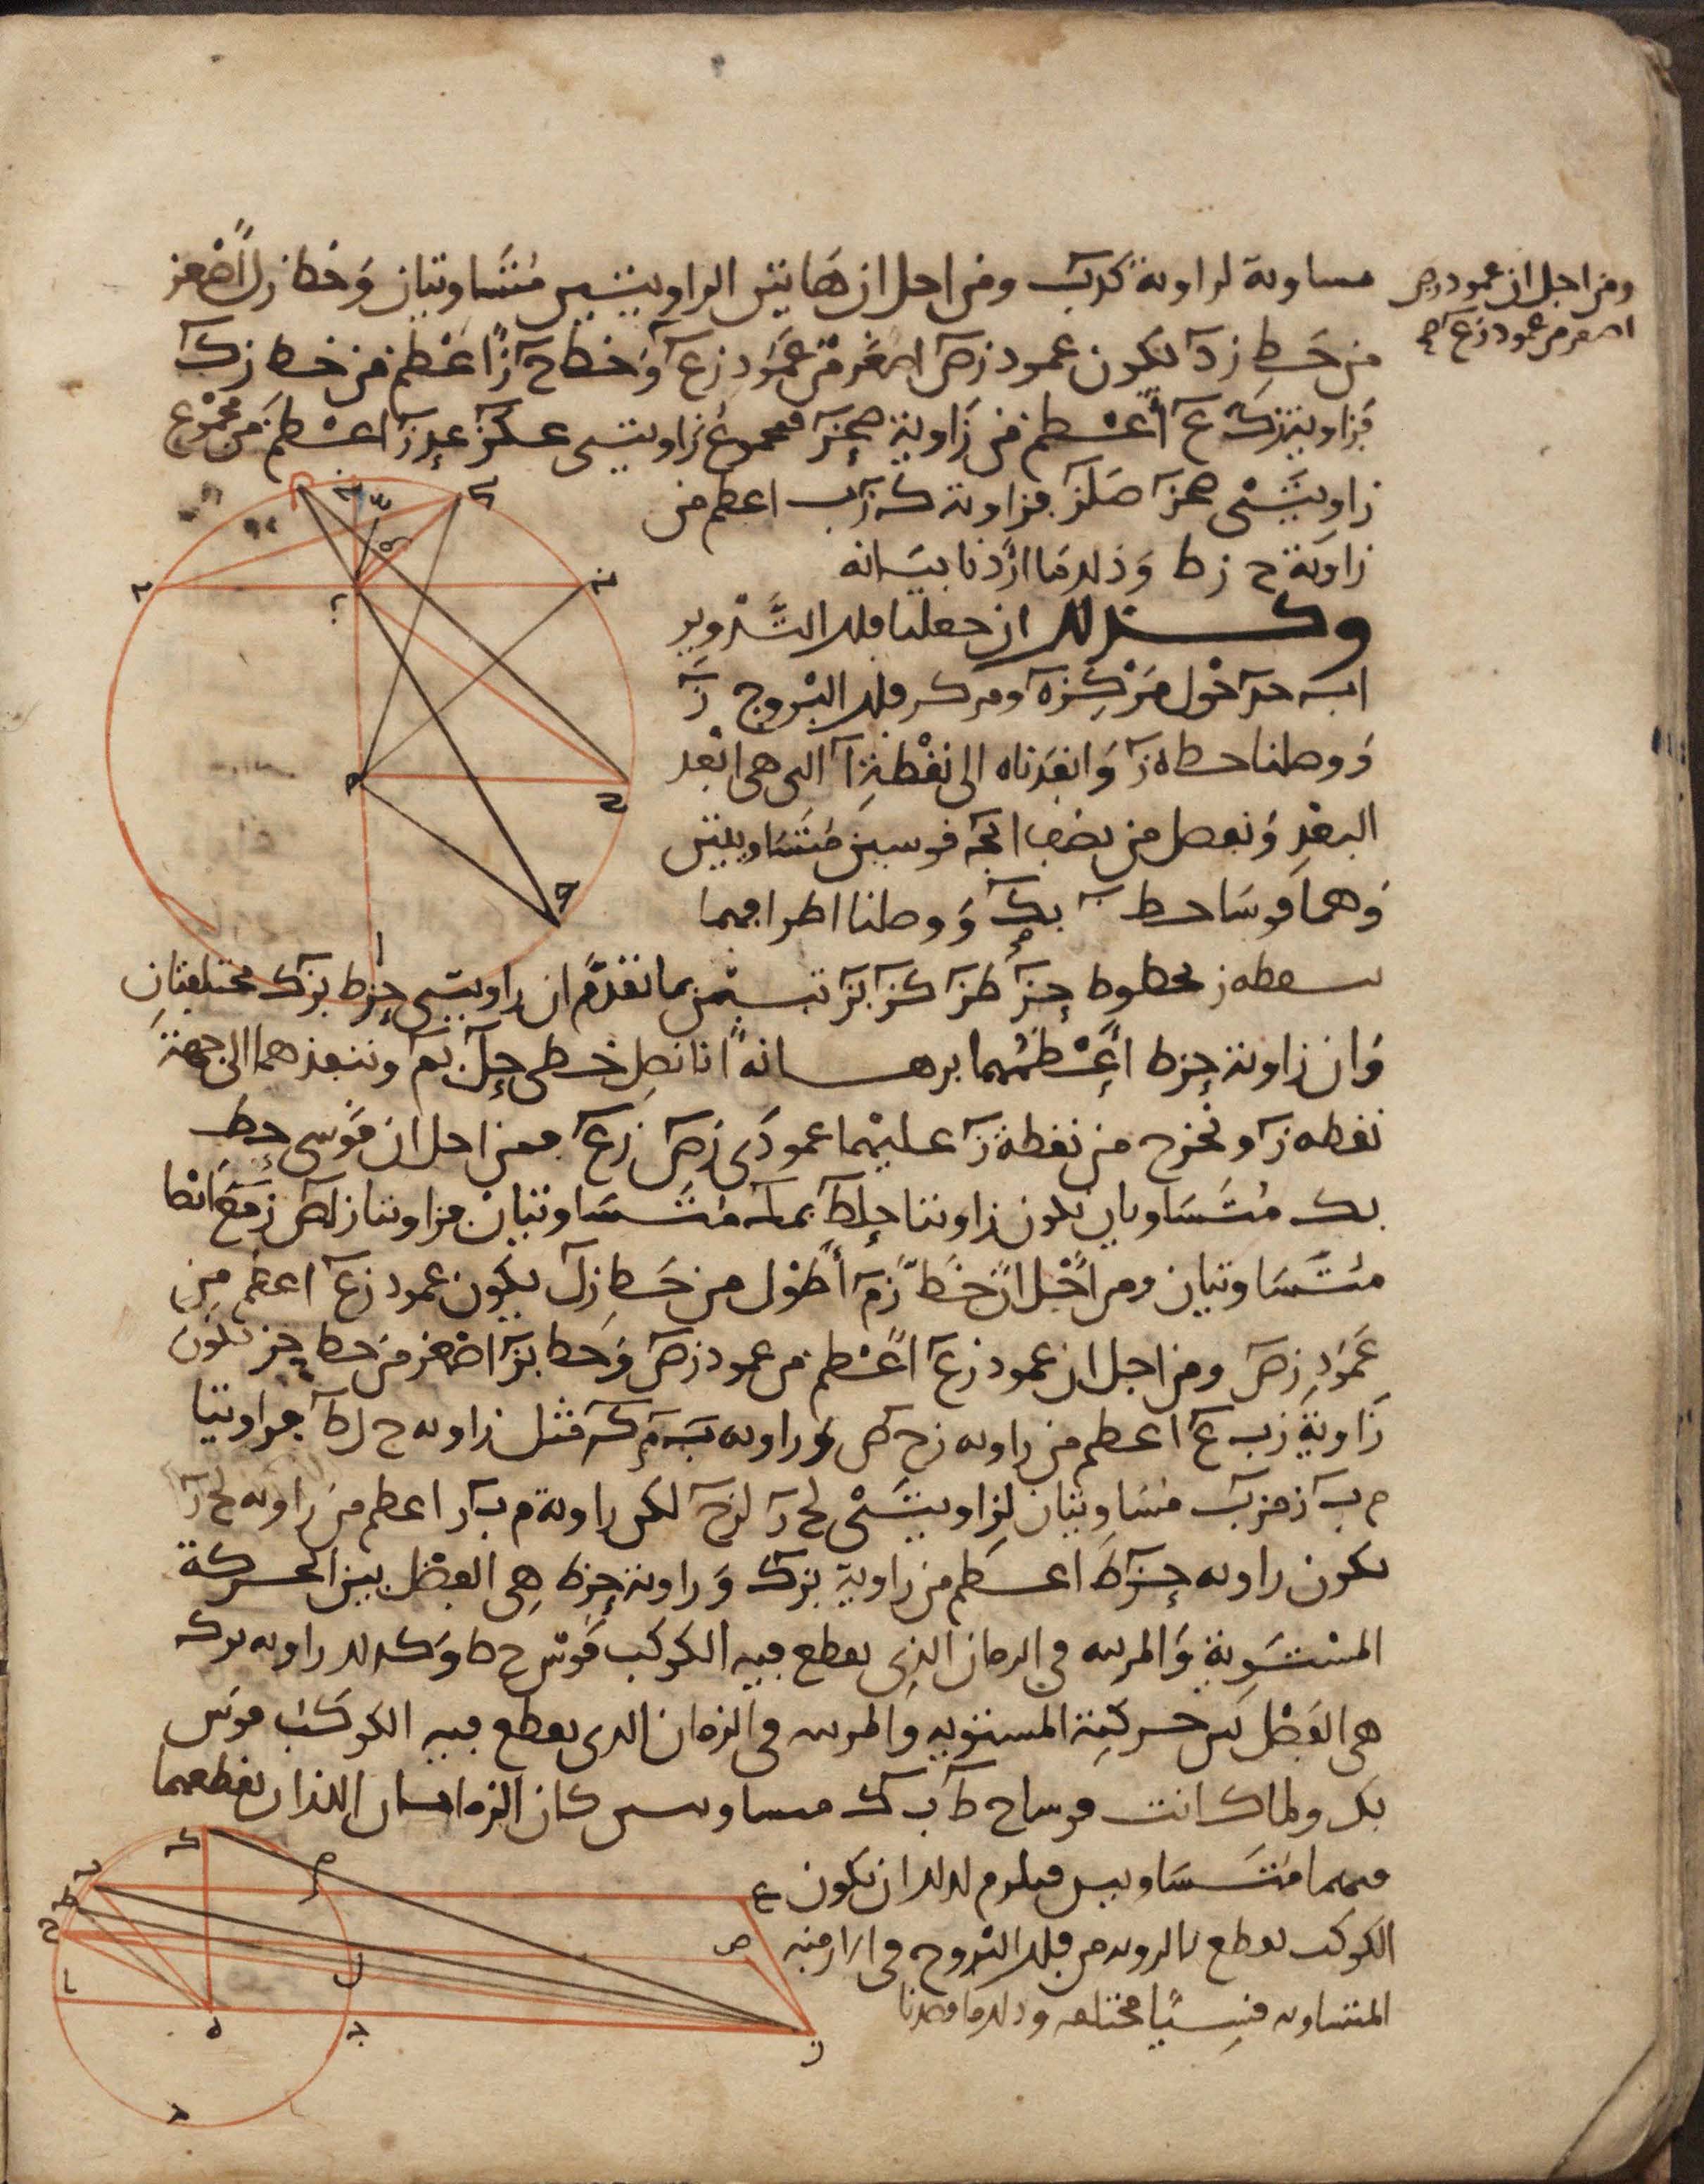 مساوية لزاوية كدب ومن اجل ان هاتين الزاويتين متساويتان وخط زل اصغر
من خط زد يكون عمود زص اصغر من عمود زع وخط ح ز اعظم من خط زك
فزاوية زك ع اعظم من زاوية صحز فمجموع زاويتي عكز عدز اعظم من مجموع
زاويتي صحز صلز فزاوية ك زب اعظم من
زاوية ح زط وذلك ما اردنا بيانه
وكذلك ان جعلنا فلك التدوير
ابجد حول مركزه ومركز فلك البروج ز
ووصلنا خط ه ز وانفذناه الى نقطة ا التي هي ابعد
البعد ونفصل من نصف ابج قوسين متساويتين
وهما قوسا حط بك ووصلنا اطرافهما
بنقطة ز بخطوط حز طز كز بز تبين بما تقدم ان زاويتي حزط بزك مختلفتان
وان زاوية حزط اعظمهما برهانه انا نصل خطي حل بم وننفذهما الى جهة
نقطة ز ونخرج من نقطة ز عليهما عمودي زص زع فمن اجل ان قوسي حط
بك متساويتان تكون زاويتا حلط بمك متساويتان فزاويتا زلص زمع ايضا
متساويتان ومن اجل ان خط زم اطول من خط زل يكون عمود زع اعظم من
عمود زص ومن اجل ان عمود زع اعظم من عمود زص وخط بز اصغر من خط حز تكون
زاوية زب ع اعظم من زاوية زح ص وزاوية ب م ك مثل زاوية ح ل ط فزاويتا
م ب ز مزب مساويتان لزاويتي لح ز لزح لكن زاوية م ب ز اعظم من زاوية لح ز
تكون زاوية حزط اعظم من زاوية بزك وزاوية حزط هي الفضل بين الحركة
المستوية والمرئية في الزمان الذي يقطع فيه الكوكب قوس ح ط وكذلك زاوية بزك
هي الفضل بين حركته المستوية والمرئية في الزمان الذي يقطع فيه الكوكب قوس
بك ولما كانت قوسا ح ط ب ك متساويتين كان الزمانان اللذان يقطعهما
فيهما متساويين فيلزم لذلك ان يكون
الكوكب يقطع بالرؤية من فلك البروج في ازمنة
المتساوية قسيا مختلفة وذلك ما قصدنا
ومن اجل ان عمود زص
اصغر من عمود زع صح